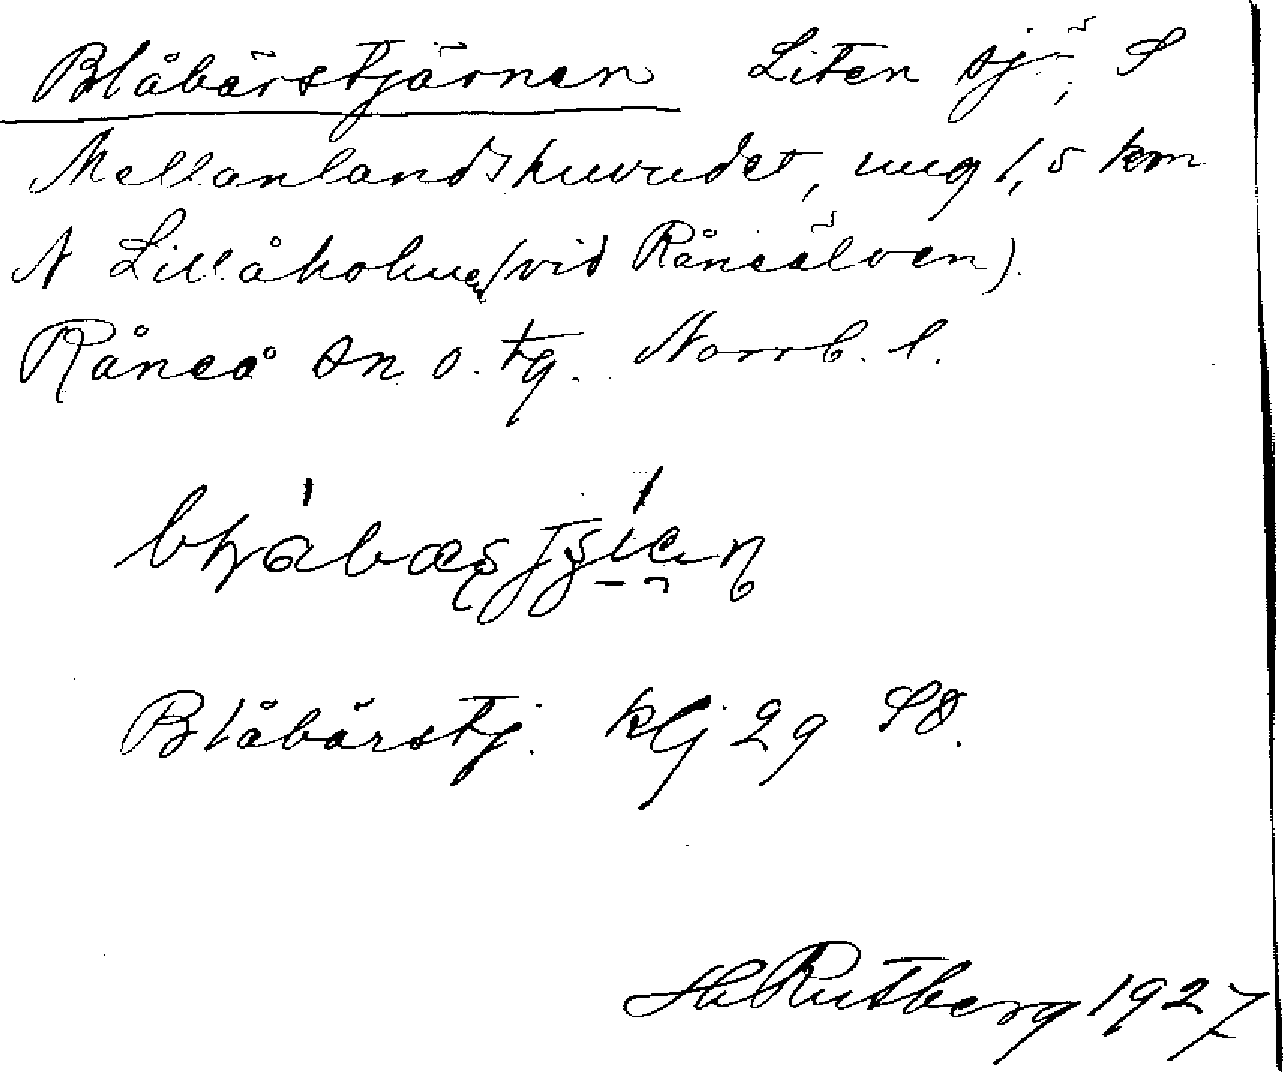 Blåbärstjärnen Liten sjö, S
Mellanlandshuvudet, ung 1,5 km
N Lillåholme (vid Råneälven).
Råneå sn o. tg. Norrb. l.
Blåbärstj. klj 29 SO.
H Rutberg 1927